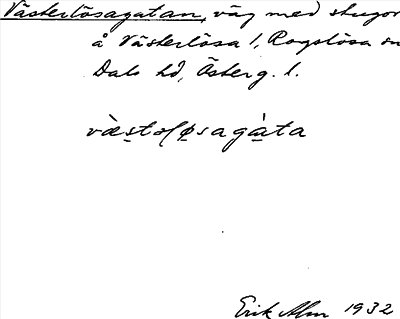 Västerlösagatan, väg med stugor
å Västerlösa 1, Rogslösa sn
Dals hd, Österg. l.
væ̀stoḷøsagàta
Erik Alm 1932